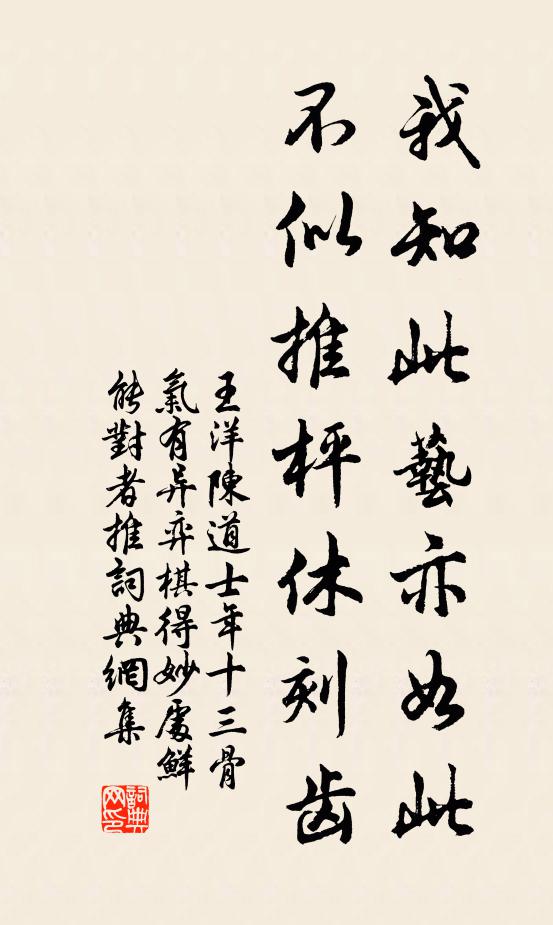 我知此藝亦如此
不似推枰休刻齿
王洋陳道士年十三骨
氣有异弈棋得妙處鮮
能對者推詞典網集
詞典
网印